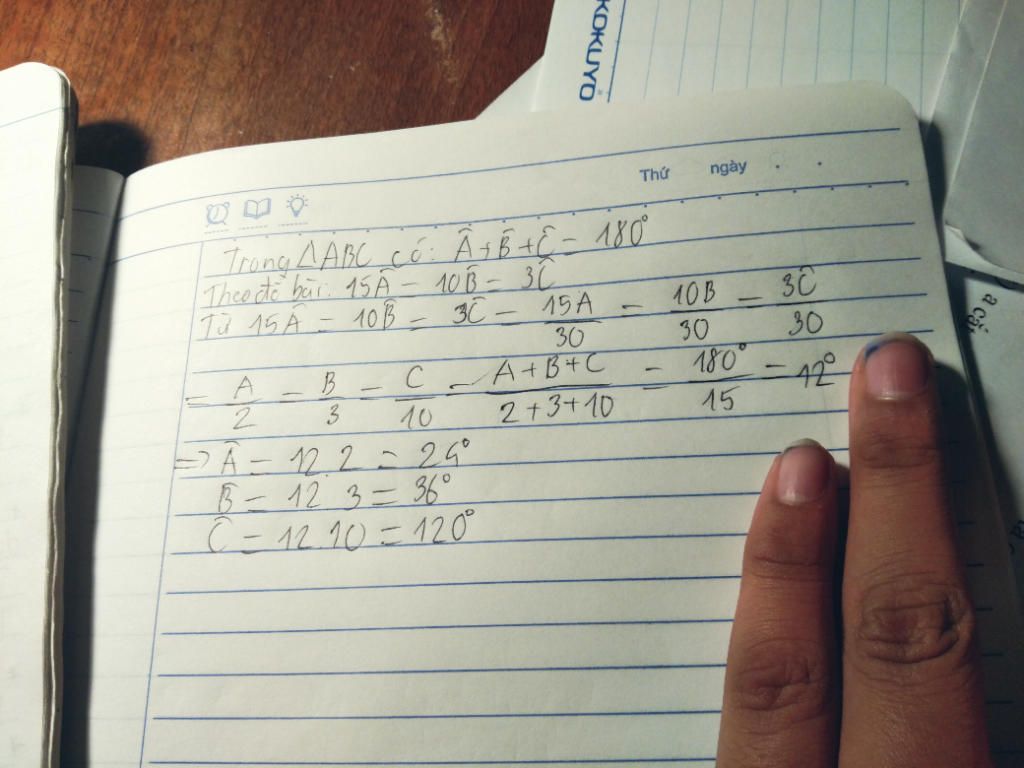 KOKUYO
Thứ ngày
Trong △ABC có: Â + B̂ + Ĉ = 180°
Theo đề bài: 15Â = 10B̂ = 3Ĉ
Từ 15Â = 10B̂ = 3Ĉ = 15A/30 = 10B/30 = 3Ĉ/30
= A/2 = B/3 = C/10 = A+B+C/2+3+10 = 180°/15 = 12°
=> Â = 12.2 = 24°
B̂ = 12.3 = 36°
Ĉ = 12.10 = 120°